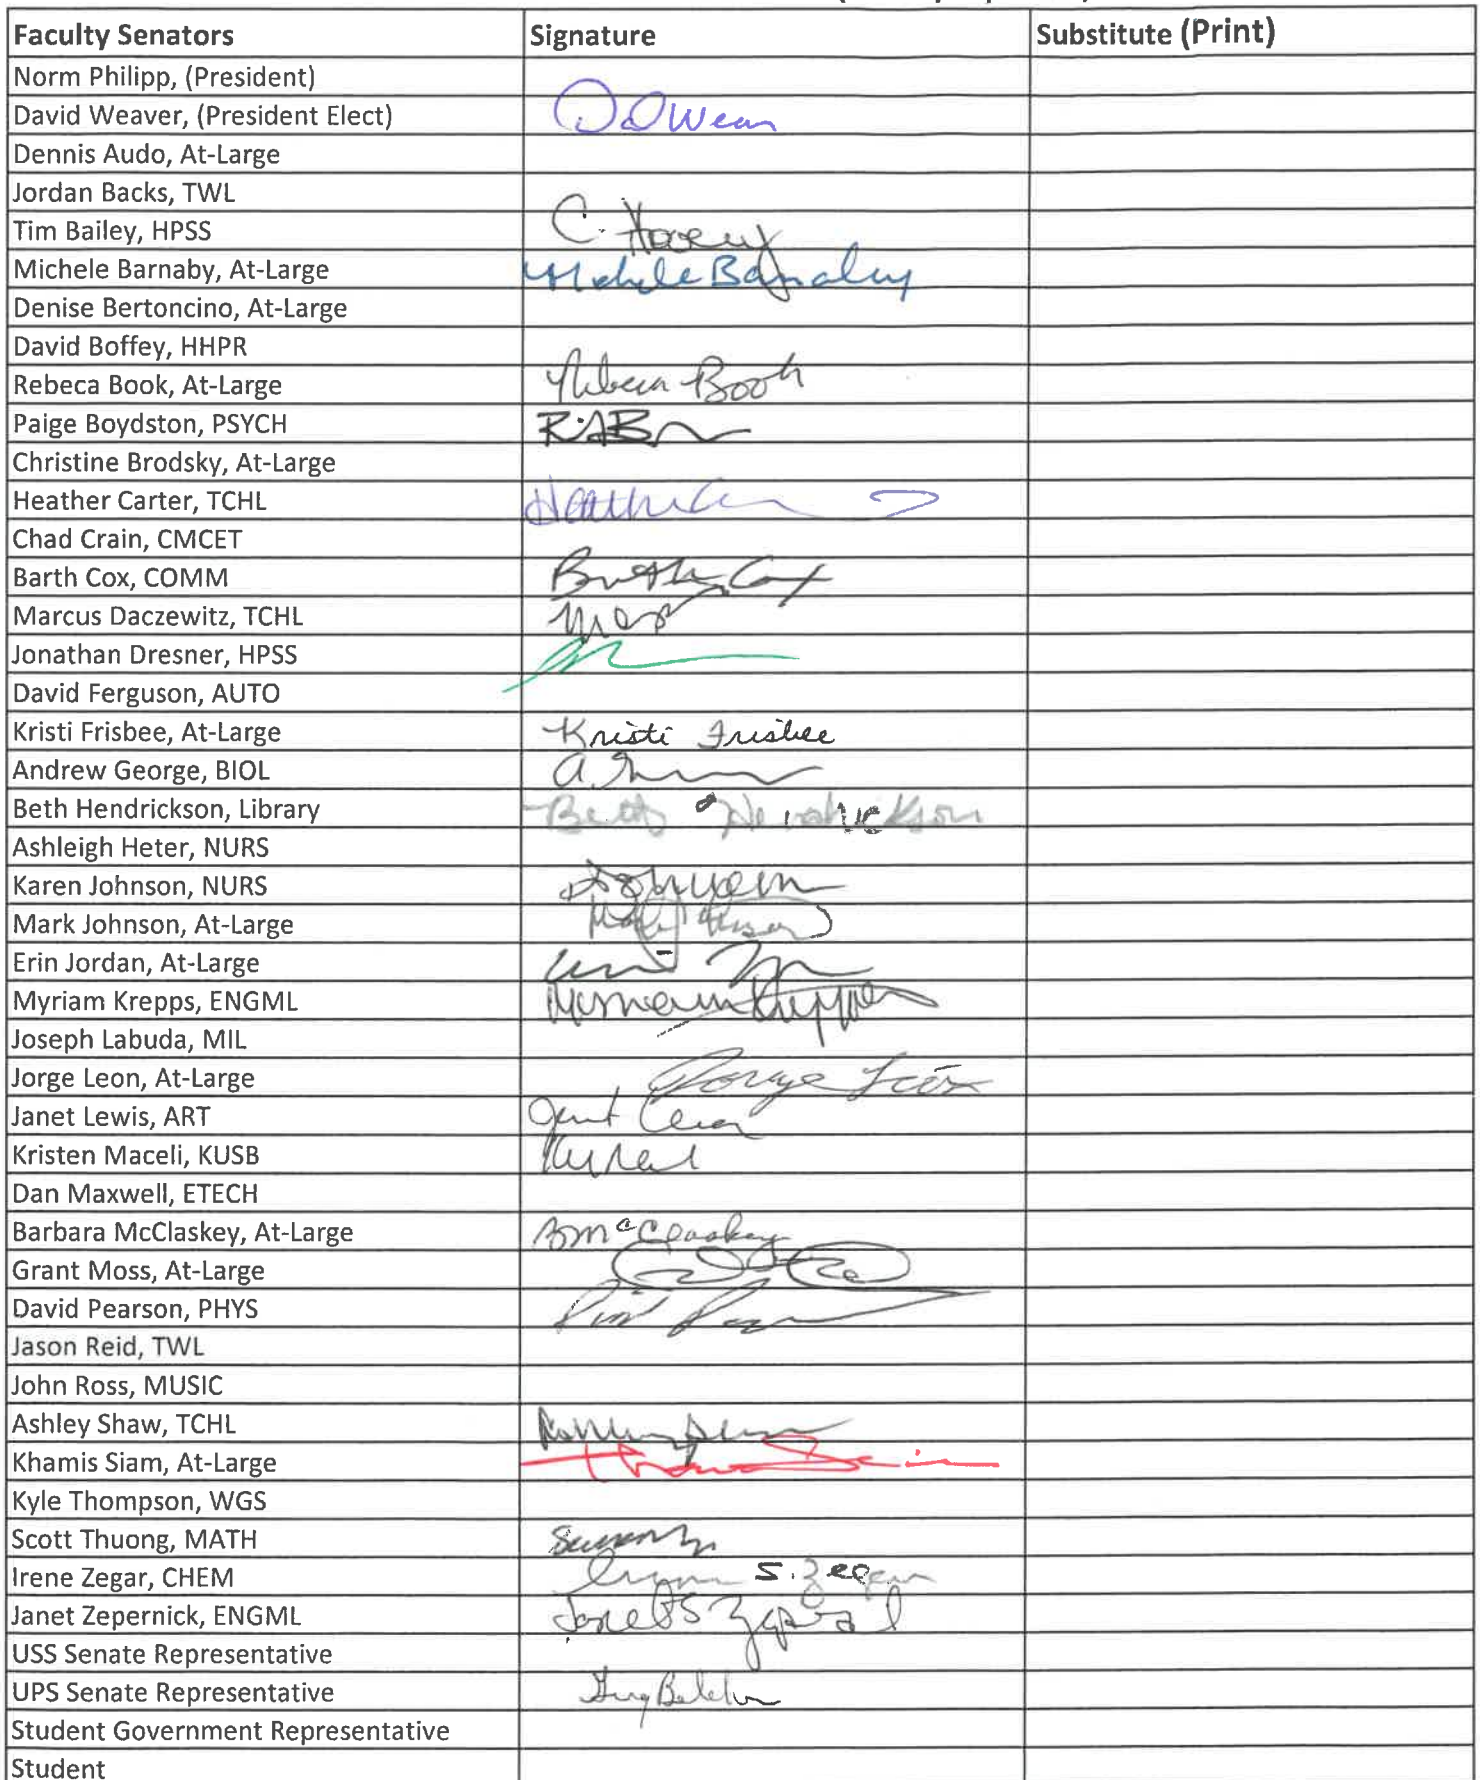 Faculty Senators Signature Substitute (Print)
Norm Philipp, (President)
David Weaver, (President Elect)
Dennis Audo, At-Large
Jordan Backs, TWL
Tim Bailey, HPSS
Michele Barnaby, At-Large Michele Barnaby
Denise Bertoncino, At-Large
David Boffey, HHPR
Rebeca Book, At-Large Rebeca Book
Paige Boydston, PSYCH
Christine Brodsky, At-Large
Heather Carter, TCHL
Chad Crain, CMCET
Barth Cox, COMM Barth Cox
Marcus Daczewitz, TCHL
Jonathan Dresner, HPSS
David Ferguson, AUTO
Kristi Frisbee, At-Large Kristi Frisbee
Andrew George, BIOL
Beth Hendrickson, Library Beth Hendrickson
Ashleigh Heter, NURS
Karen Johnson, NURS
Mark Johnson, At-Large
Erin Jordan, At-Large
Myriam Krepps, ENGML
Joseph Labuda, MIL
Jorge Leon, At-Large Jorge León
Janet Lewis, ART
Kristen Maceli, KUSB
Dan Maxwell, ETECH
Barbara McClaskey, At-Large B McClaskey
Grant Moss, At-Large
David Pearson, PHYS
Jason Reid, TWL
John Ross, MUSIC
Ashley Shaw, TCHL
Khamis Siam, At-Large
Kyle Thompson, WGS
Scott Thuong, MATH
Irene Zegar, CHEM S. Zegar
Janet Zepernick, ENGML
USS Senate Representative
UPS Senate Representative
Student Government Representative
Student